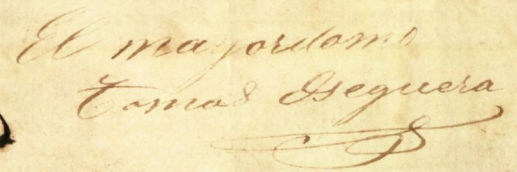 El mayordomo
Tomas Oseguera